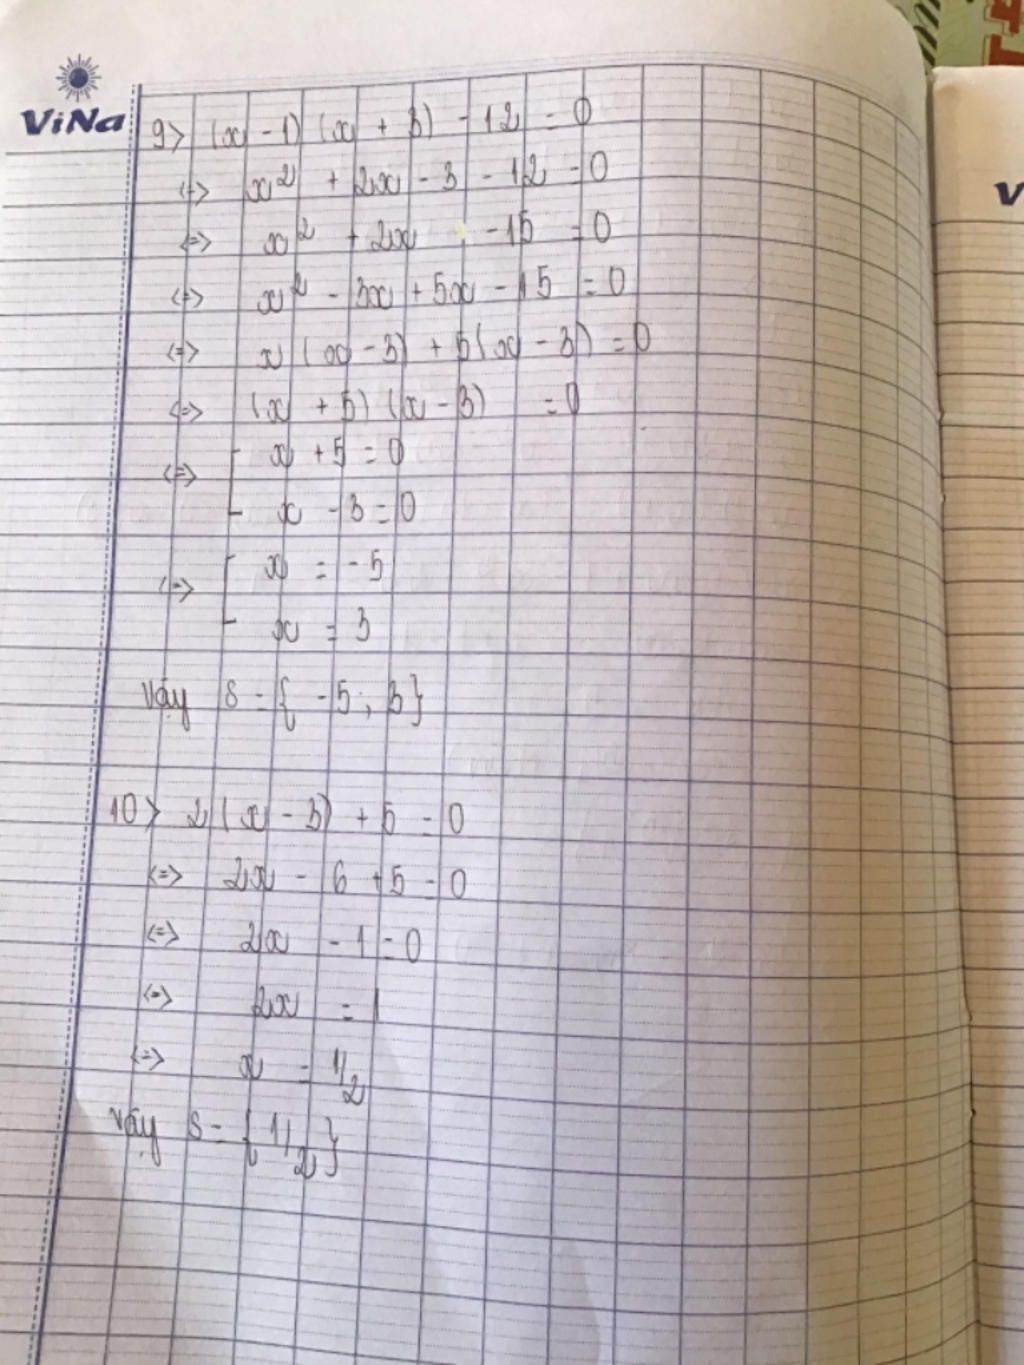 ViNa
9> (x - 1) (x + 3) - 12 = 0
<=> x² + 2x - 3 - 12 = 0
<=> x² + 2x - 15 = 0
<=> x² - 3x + 5x - 15 = 0
<=> x (x - 3) + 5 (x - 3) = 0
<=> (x + 5) (x - 3) = 0
<=> [ x + 5 = 0
x - 3 = 0
<=> [ x = -5
x = 3
Vậy S = { -5 ; 3 }
10> 2 (x - 3) + 5 = 0
<=> 2x - 6 + 5 = 0
<=> 2x - 1 = 0
<=> 2x = 1
<=> x = 1/2
Vậy S = { 1/2 }